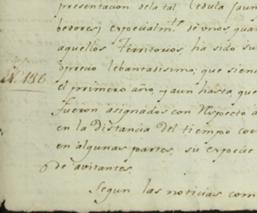 presentacion dela tal Cedula
beedores; especialm.te
aquellos Territorios, ha sido su
precio lebantadisimo; que sien
N. 186.
el primero año, y aun hasta que
fueron asignados con Respecto a
en la distancia del tiempo
en algunas partes, su especie
de avitantes.
Segun las noticias com